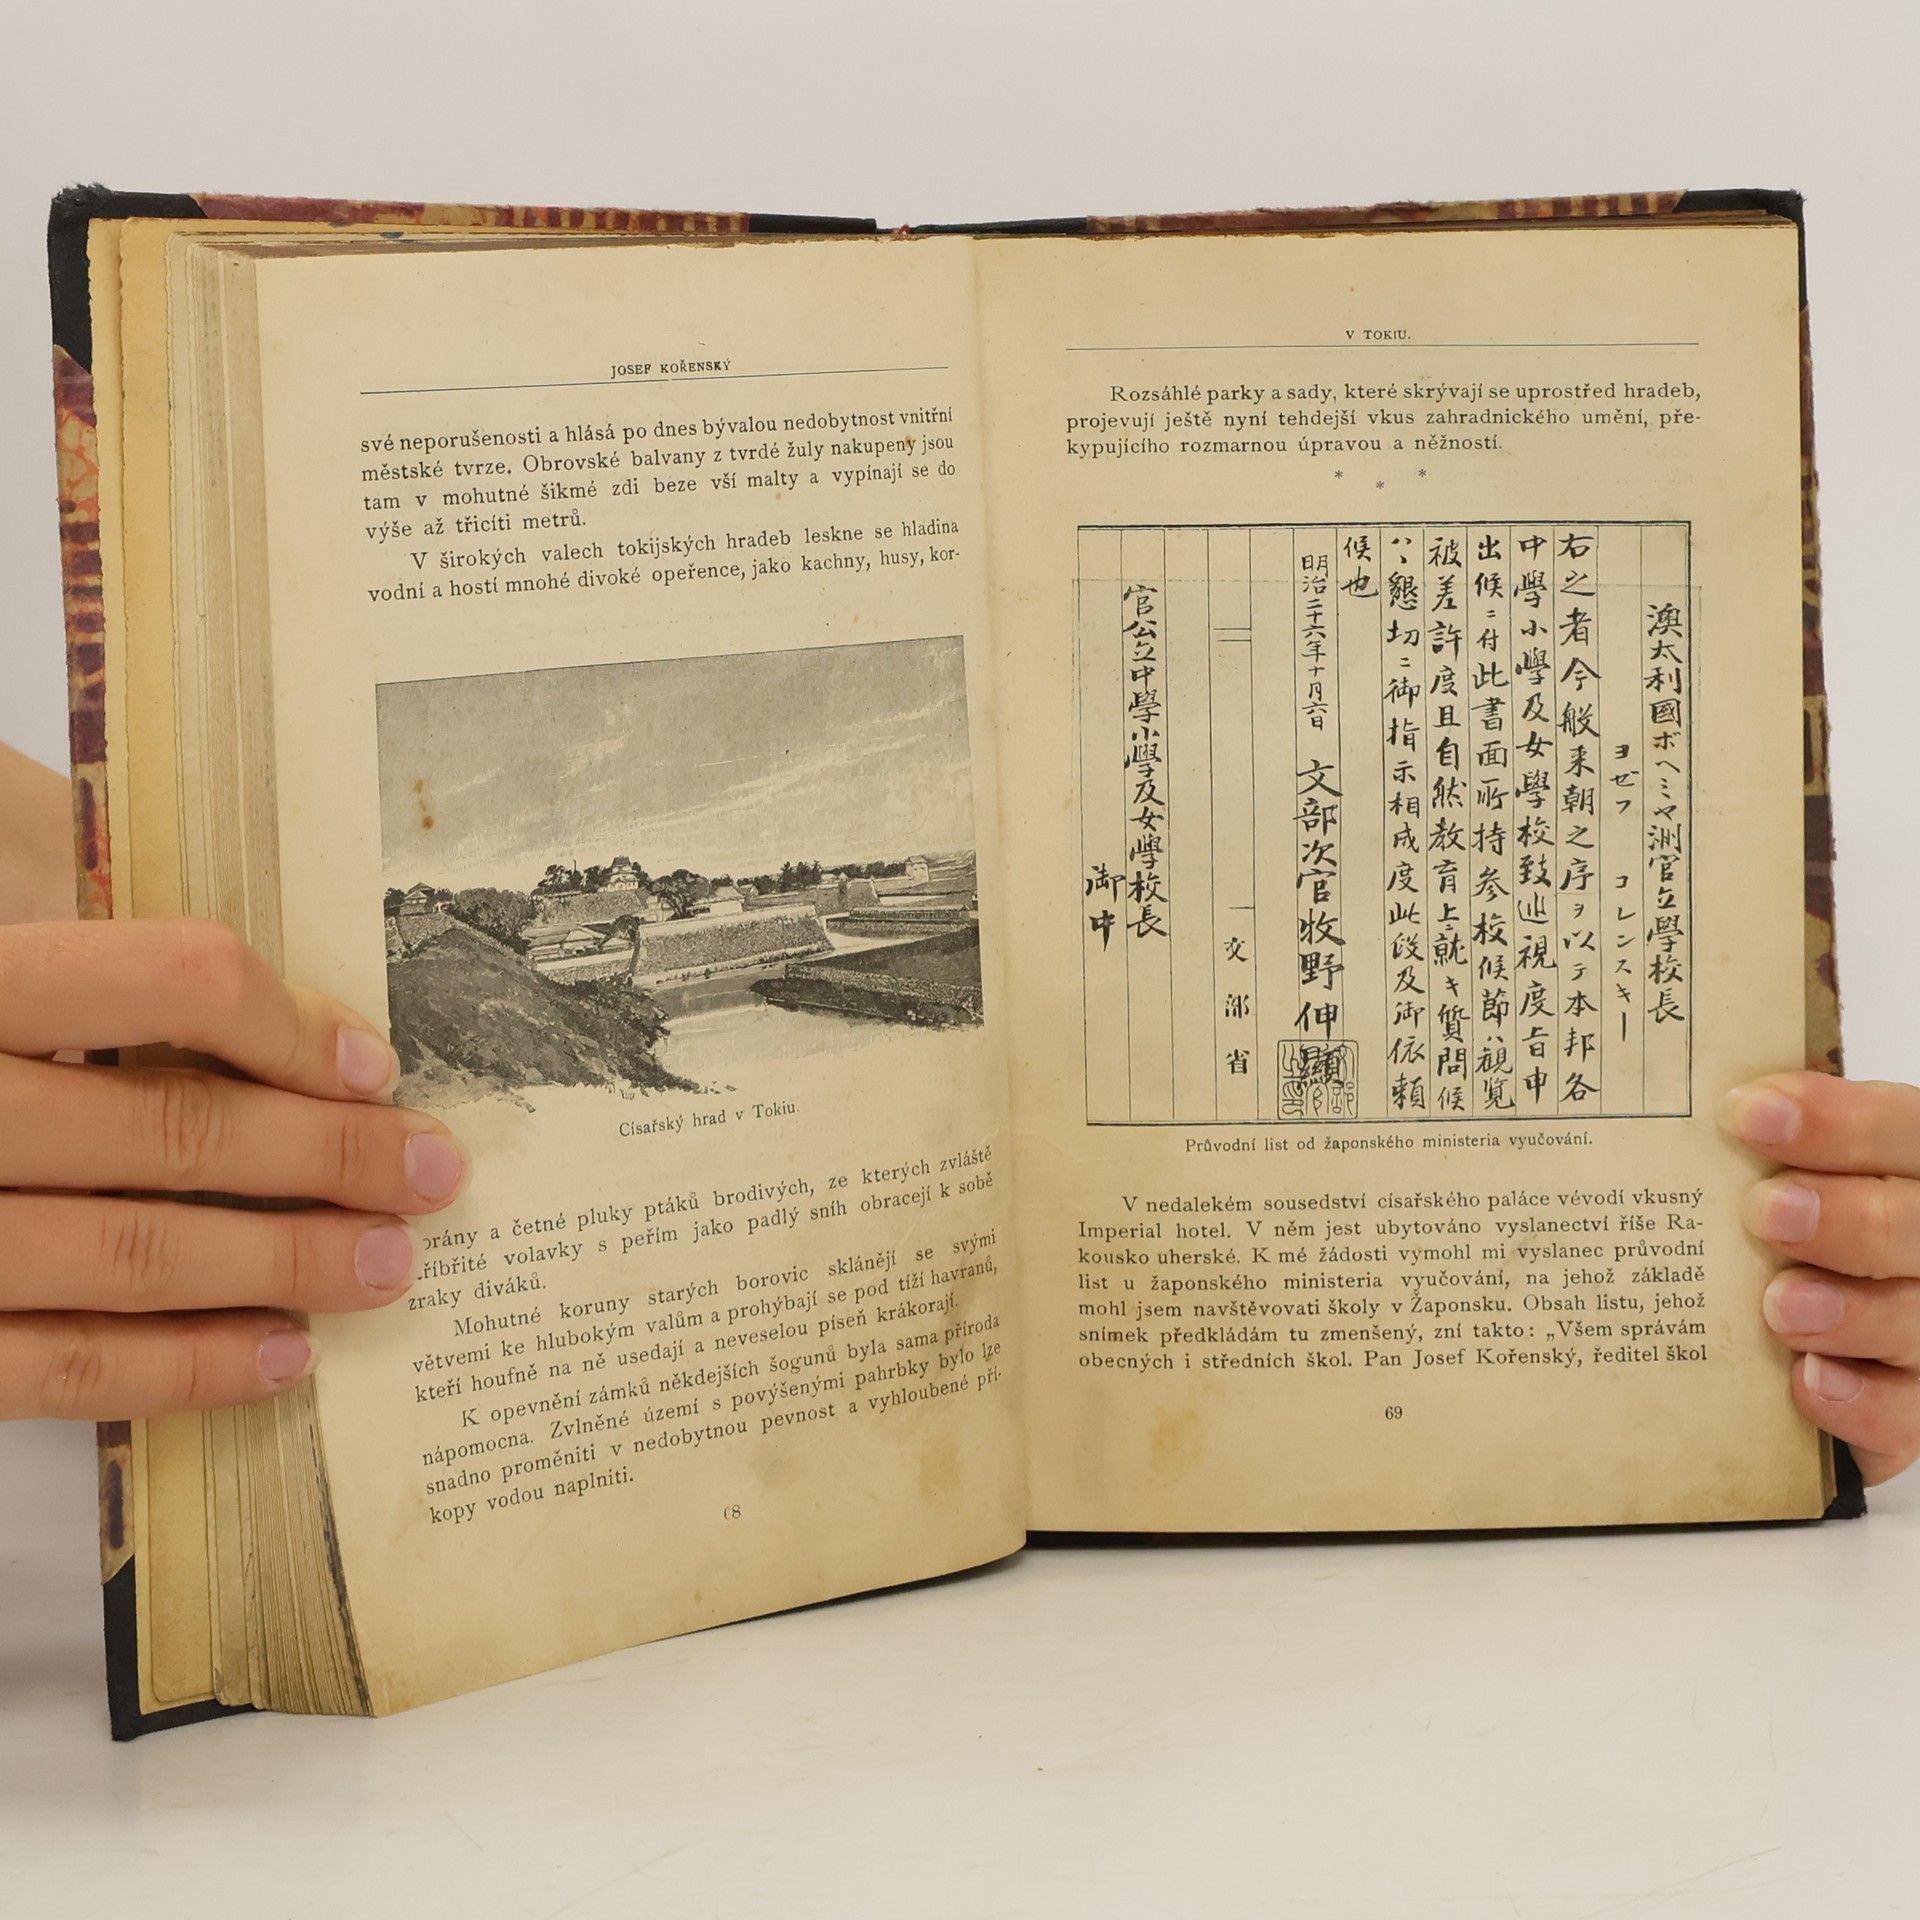 JOSEF KOŘENSKÝ
své neporušenosti a hlásá po dnes bývalou nedobytnost vnitřní
městské tvrze. Obrovské balvany z tvrdé žuly nakupeny jsou
tam v mohutné šikmé zdi beze vší malty a vypínají se do
výše až třicíti metrů.
V širokých valech tokijských hradeb leskne se hladina
vodní a hostí mnohé divoké opeřence, jako kachny, husy, kor-
Císařský hrad v Tokiu.
orány a četné pluky ptáků brodivých, ze kterých zvláště
říbřité volavky s peřím jako padlý sníh obracejí k sobě
zraky diváků.
Mohutné koruny starých borovic sklánějí se svými
větvemi ke hlubokým valům a prohýbají se pod tíží havranů,
kteří houfně na ně usedají a neveselou píseň krákorají.
K opevnění zámků někdejších šogunů byla sama příroda
nápomocna. Zvlněné území s povýšenými pahrbky bylo lze
snadno proměniti v nedobytnou pevnost a vyhloubené pří-
kopy vodou naplniti.
68
V TOKIU.
Rozsáhlé parky a sady, které skrývají se uprostřed hradeb,
projevují ještě nyní tehdejší vkus zahradnického umění, pře-
kypujícího rozmarnou úpravou a něžností.
* * *
澳太利國ボヘミヤ洲官立學校長
ヨゼフ コレンスキー
右之者今般来朝之序ヲ以テ本邦各
中學小學及女學校致巡視度旨申
出候ニ付此書面所持参校候節ハ観覧
被差許度且自然教育上ニ就キ質問候
ハヽ懇切ニ御指示相成度此段及御依頼
候也
明治二十六年十月六日 文部次官牧野伸顯
文部省
官公立中學小學及女學校長
御中
Průvodní list od žaponského ministeria vyučování.
V nedalekém sousedství císařského paláce vévodí vkusný
Imperial hotel. V něm jest ubytováno vyslanectví říše Ra-
kousko uherské. K mé žádosti vymohl mi vyslanec průvodní
list u žaponského ministeria vyučování, na jehož základě
mohl jsem navštěvovati školy v Žaponsku. Obsah listu, jehož
snímek předkládám tu zmenšený, zní takto: „Všem správám
obecných i středních škol. Pan Josef Kořenský, ředitel škol
69